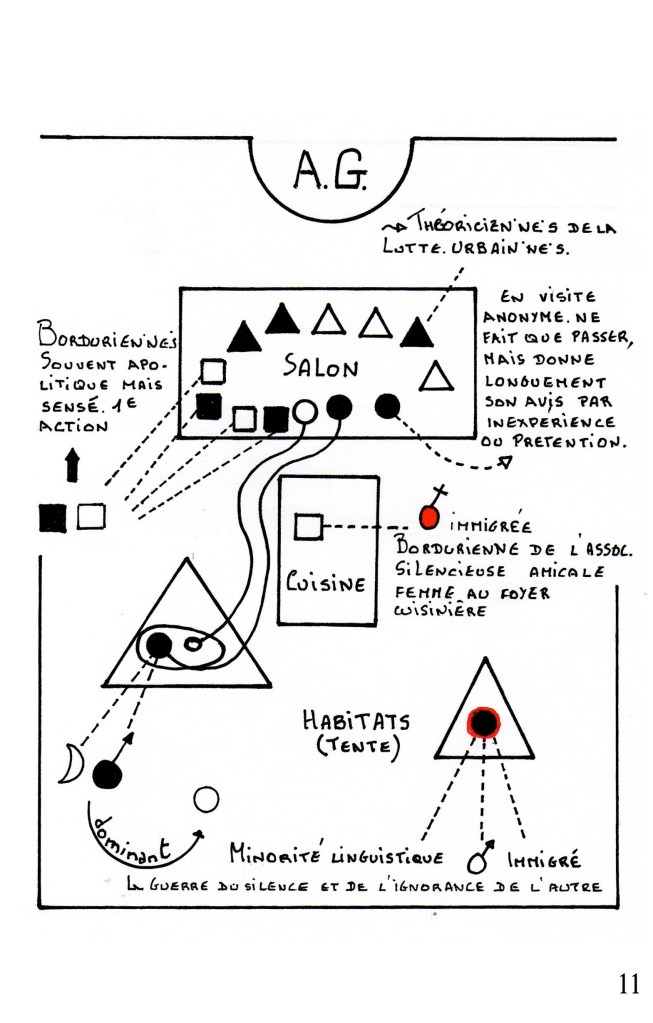 A.G.
↝ THÉORICIEN·NE·S DE LA
LUTTE. URBAIN·NE·S.
EN VISITE
ANONYME. NE
FAIT QUE PASSER,
MAIS DONNE
LONGUEMENT
SON AVIS PAR
INEXPERIENCE
OU PRETENTION.
BORDURIEN·NE·S
SOUVENT APO-
LITIQUE MAIS
SENSÉ. 1E
ACTION
SALON
CUISINE
IMMIGRÉE
BORDURIENNE DE L'ASSOC.
SILENCIEUSE AMICALE
FEMME AU FOYER
CUISINIÈRE
HABITATS
(TENTE)
dominant
MINORITÉ LINGUISTIQUE
IMMIGRÉ
LA GUERRE DU SILENCE ET DE L'IGNORANCE DE L'AUTRE
11